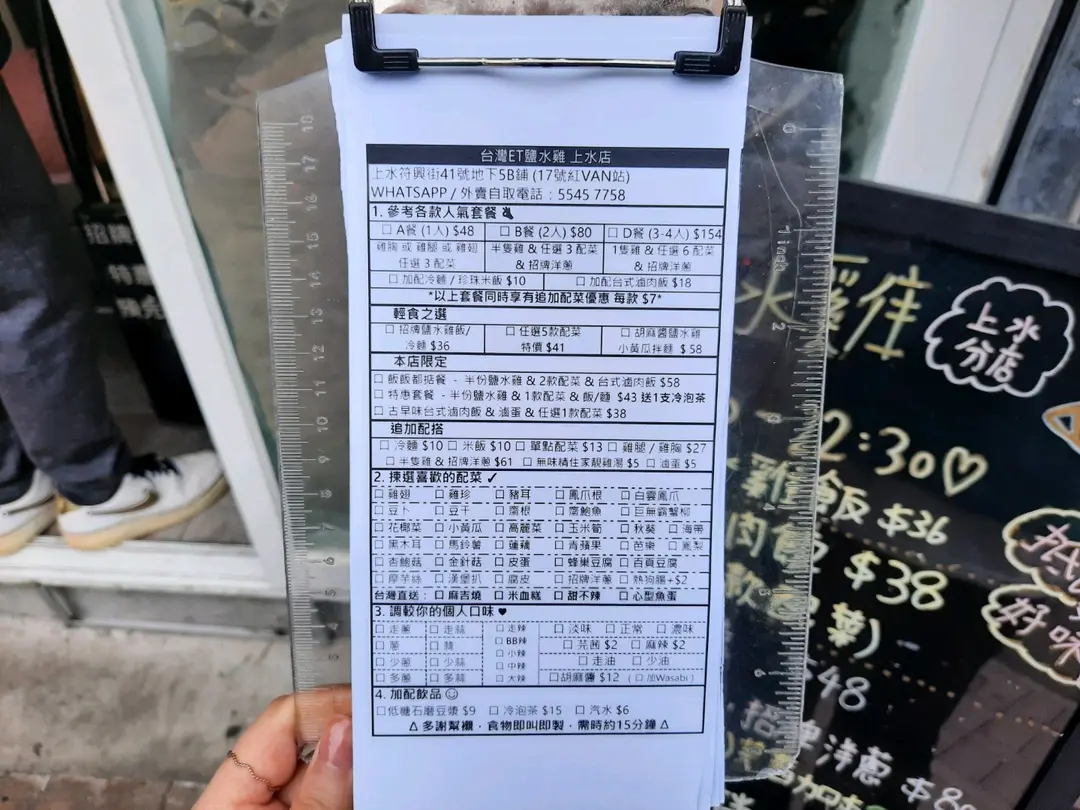 台灣ET鹽水雞 上水店
上水符興街41號地下5B鋪 (17號紅VAN站)
WHATSAPP / 外賣自取電話 : 5545 7758
1. 參考各款人氣套餐
□ A餐 (1人) $48 □ B餐 (2人) $80 □ D餐 (3-4人) $154
雞胸 或 雞腿 或 雞翅 半隻雞 & 任選 3 配菜 1隻雞 & 任選 6 配菜
任選 3 配菜 & 招牌洋蔥 & 招牌洋蔥
□ 加配冷麵 / 珍珠米飯 $10 □ 加配台式滷肉飯 $18
*以上套餐同時享有追加配菜優惠 每款 $7*
輕食之選
□ 招牌鹽水雞飯/ □ 任選5款配菜 □ 胡麻醬鹽水雞
冷麵 $36 特價 $41 小黃瓜拌麵 $ 58
本店限定
□ 飯飯都掂餐 - 半份鹽水雞 & 2款配菜 & 台式滷肉飯 $58
□ 特惠套餐 - 半份鹽水雞 & 1款配菜 & 飯/麵 $43 送1支冷泡茶
□ 古早味台式滷肉飯 & 滷蛋 & 任選1款配菜 $38
追加配搭
□ 冷麵 $10 □ 米飯 $10 □ 單點配菜 $13 □ 雞腿 / 雞胸 $27
□ 半隻雞 & 招牌洋蔥 $61 □ 無味精住家靚雞湯 $5 □ 滷蛋 $5
2. 揀選喜歡的配菜 ✓
□ 雞翅 □ 雞珍 □ 豬耳 □ 鳳爪根 □ 白雲鳳爪
□ 豆卜 □ 豆干 □ 齋根 □ 齋鮑魚 □ 巨無霸蟹柳
□ 花椰菜 □ 小黃瓜 □ 高麗菜 □ 玉米筍 □ 秋葵 □ 海帶
□ 黑木耳 □ 馬鈴薯 □ 蓮藕 □ 青蘋果 □ 芭樂 □ 鳳梨
□ 杏鮑菇 □ 金針菇 □ 皮蛋 □ 蜂巢豆腐 □ 百頁豆腐
□ 摩芋絲 □ 漢堡扒 □ 腐皮 □ 招牌洋蔥 □ 熱狗腸+$2
台灣直送 : □ 麻吉燒 □ 米血糕 □ 甜不辣 □ 心型魚蛋
3. 調較你的個人口味 ♥
□ 走蔥 □ 走蒜 □ 走辣 □ 淡味 □ 正常 □ 濃味
□ 蔥 □ 蒜 □ BB辣 □ 芫茜 $2 □ 麻辣 $2
□ 少蔥 □ 少蒜 □ 小辣 □ 中辣 □ 走油 □ 少油
□ 多蔥 □ 多蒜 □ 大辣 □胡麻醬 $12 (□ 加Wasabi)
4. 加配飲品 ☺
□低糖石磨豆漿 $9 □ 冷泡茶 $15 □ 汽水 $6
△ 多謝幫襯，食物即叫即製，需時約15分鐘 △
上水
分店
2:30♡
雞飯 $36
肉飯 $38
$48
招牌洋蔥
好味
招牌
特
1 inch